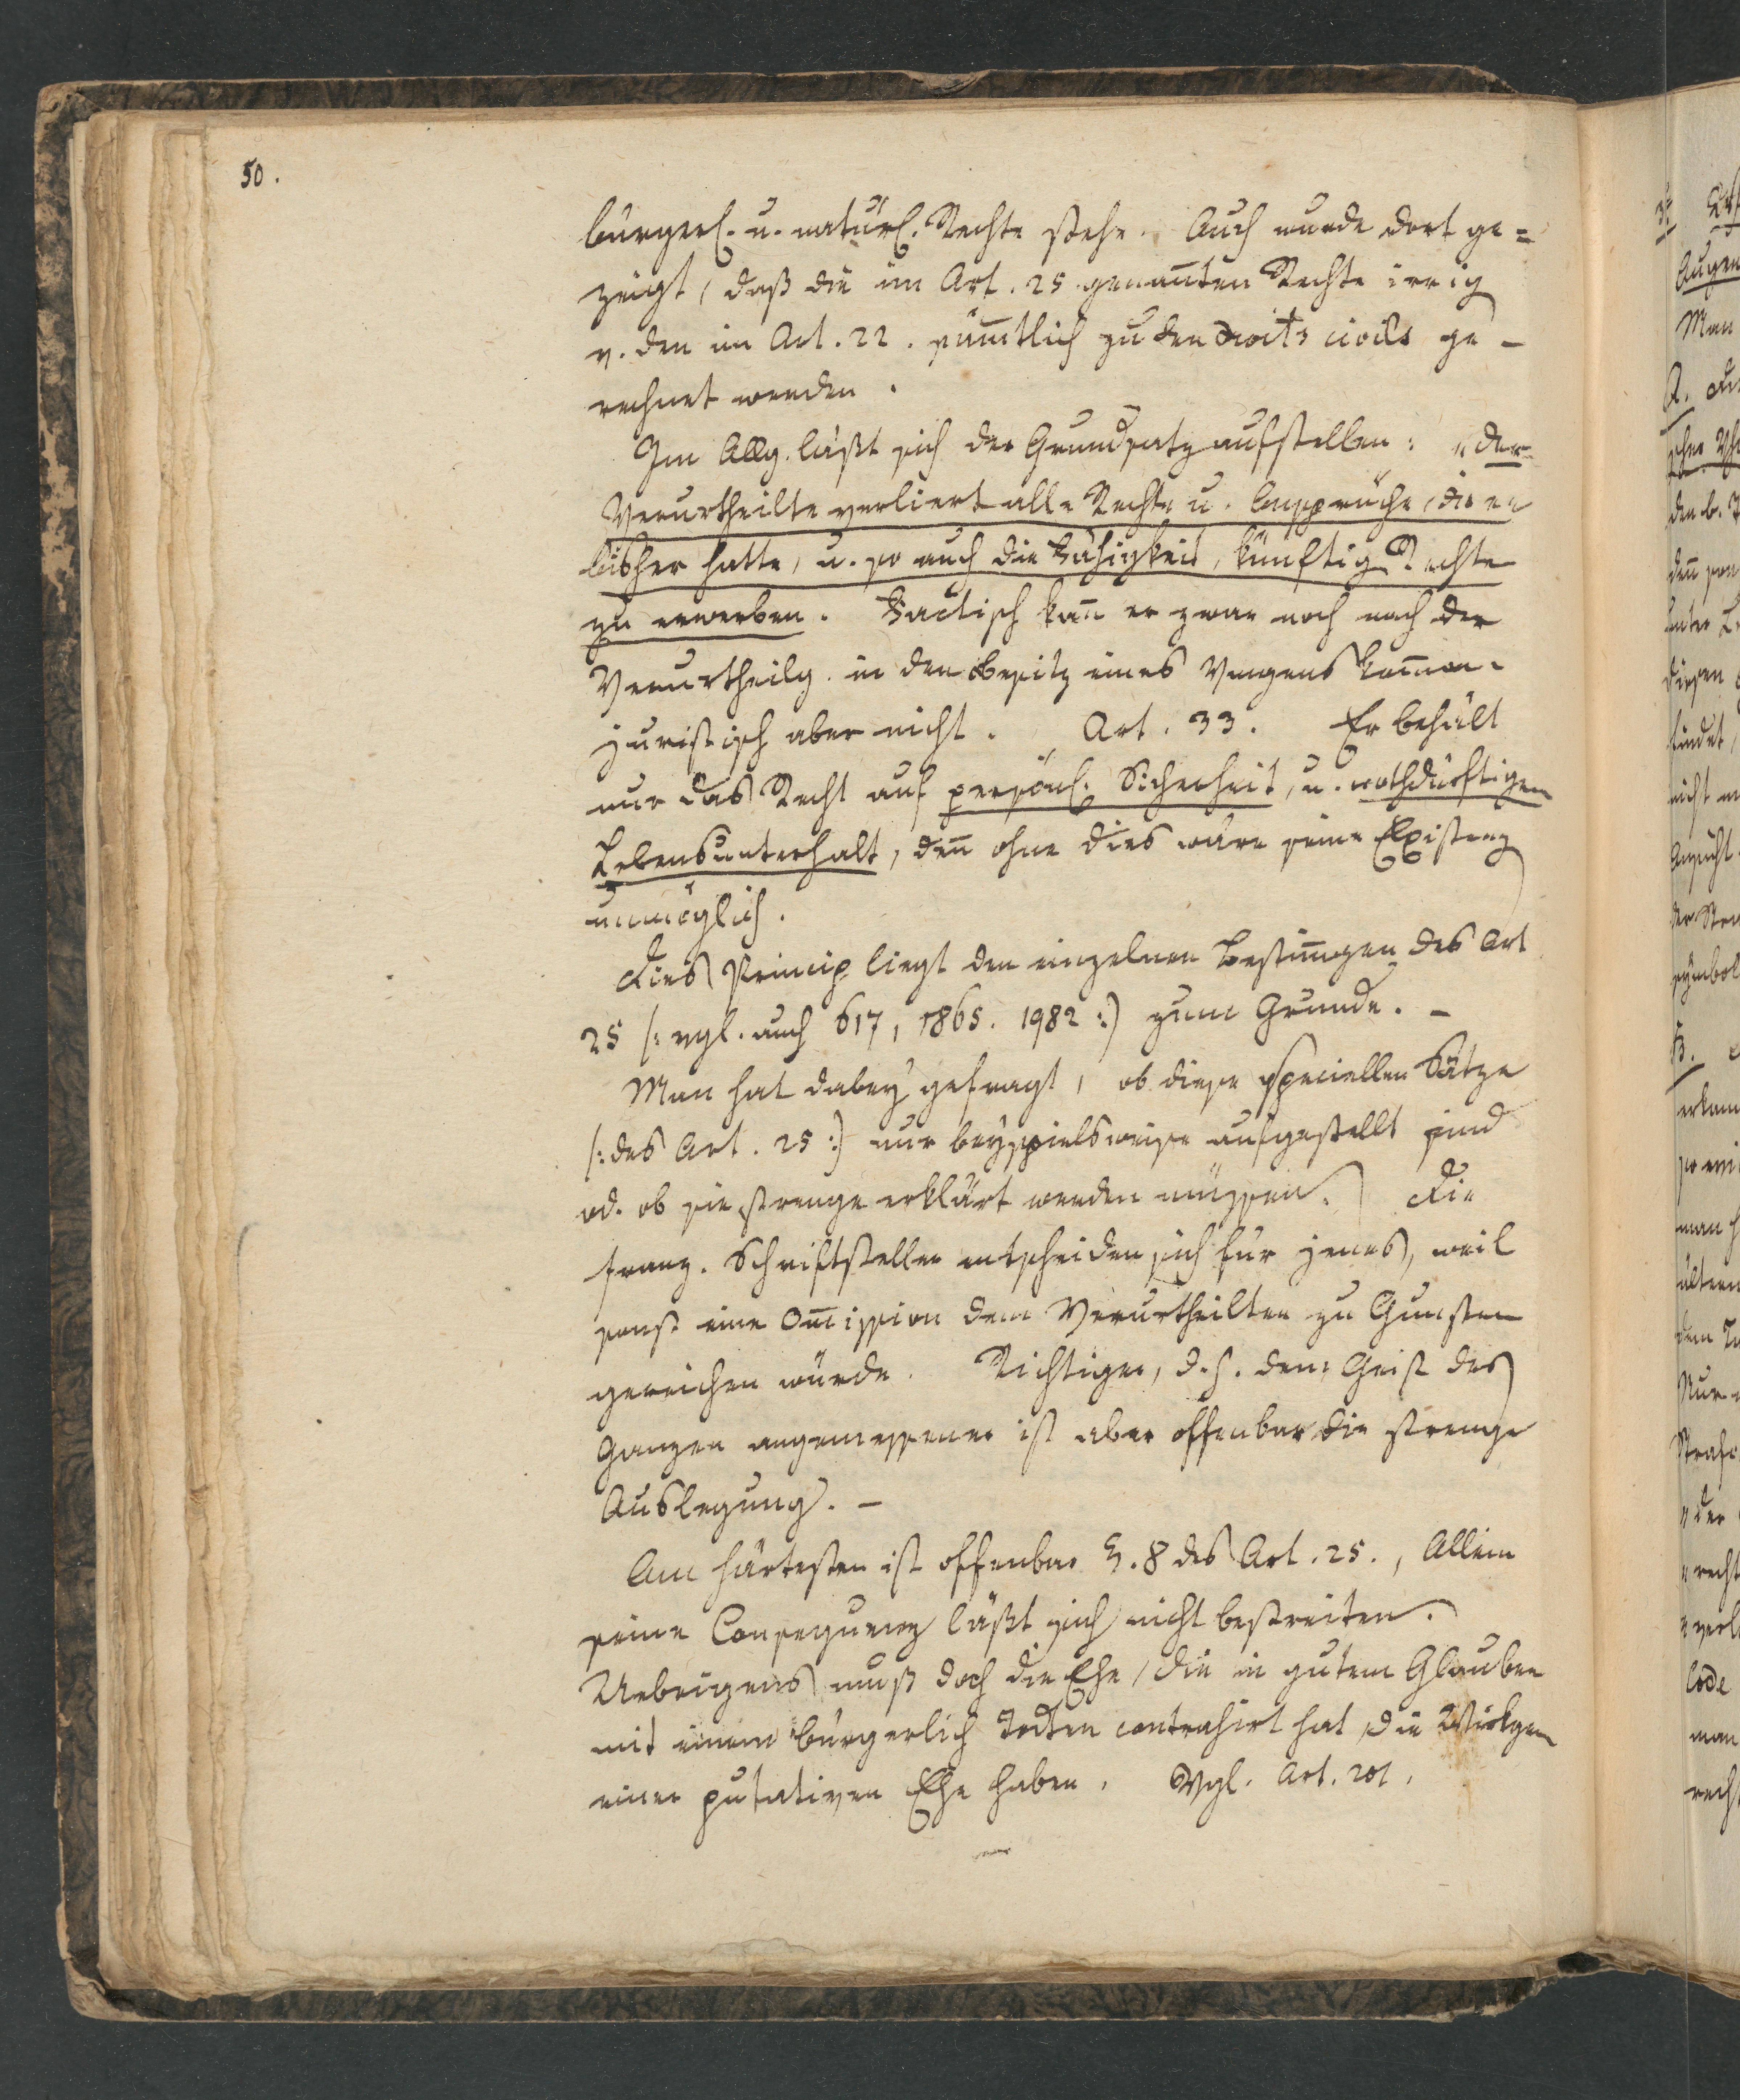 50.
bürgerl. u. natürl. Rechte stehe. Auch wurde dort ge=
zeigt, daß die im Art. 25 genan̄ten Rechte irrig
v. den im Art. 22. säm̄tlich zu den droits civils ge-
rechnet werden.
Im Allg. läßt sich der Grundsatz aufstellen: „der
Verurtheilte verliert alle Rechte u. Ansprüche, die er
bisher hatte, u. so auch die Fähigkeit, künftig Rechte
zu erwerben. Factisch kan̄ er zwar noch nach der
Verurtheilg. in den Besitz eines Vmgens kom̄en.
juristisch aber nicht. Art. 33. Er behält
nur das Recht auf persönl. Sicherheit, u. nothdürftigen
Lebensunterhalt, den̄ ohne dies wäre seine Existenz
unmöglich.
Dies Princip liegt den einzelnen Bestim̄gen des Art
25 /: vgl. auch 617, 1865. 1982 :/ zum Grunde. –
Man hat dabey gefragt, ob diese speciellen Sätze
/: des Art. 25 :/ nur beyspielsweise aufgestellt sind
od. ob sie strenge erklärt werden müssen. Die
franz. Schriftsteller entscheiden sich für jenes, weil
sonst eine Om̄ission dem Verurtheilten zu Gunsten
gereichen würde. Richtiger, d. h. dem Geist des
Ganzen angemessener ist aber offenbar die strenge
Auslegung. –
Am härtesten ist offenbar §. 8 des Art. 25., Allein
seine Consequenz läßt sich nicht bestreiten.
Uebrigens muß doch die Ehe, die in gutem Glauben
mit einem bürgerlich Todten contrahirt hat, die Wirkgen
einer putativen Ehe haben. Vgl. Art. 201.